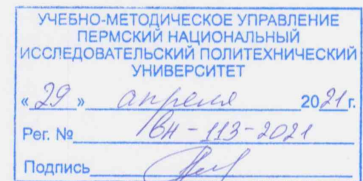 УЧЕБНО-МЕТОДИЧЕСКОЕ УПРАВЛЕНИЕ
ПЕРМСКИЙ НАЦИОНАЛЬНЫЙ
ИССЛЕДОВАТЕЛЬСКИЙ ПОЛИТЕХНИЧЕСКИЙ
УНИВЕРСИТЕТ
«29» апреля 2021г.
Рег. № ВН-113-2021
Подпись